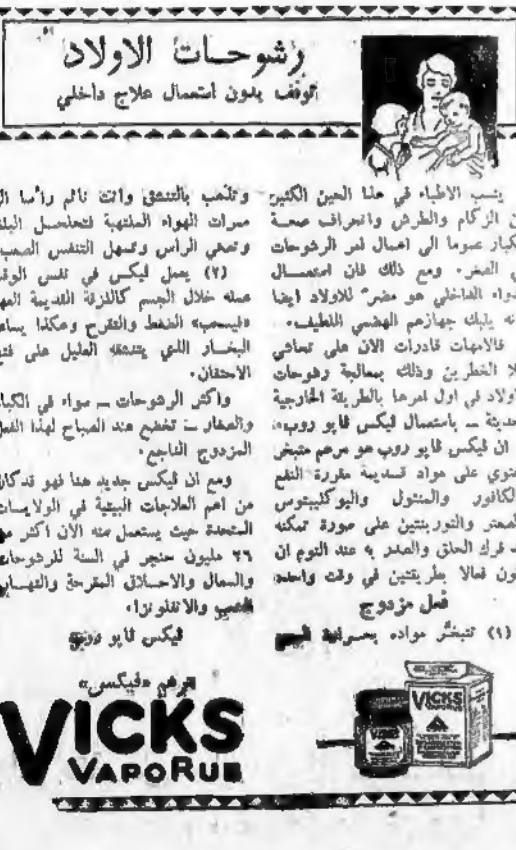 رشوحات الاولاد
توقف بدون استعمال علاج داخلي
ينسب الاطباء في هذا الحين الكثير
من الزكام والطرش وانحراف صحة
الكبار عموما الى اهمال امر الرشوحات
في الصغر٠ ومع ذلك فان استعمال
الدواء الداخلي هو مضر للاولاد ايضا
انه يلبك جهازهم الهضمي اللطيف٠
فالامهات قادرات الان على تحاشي
كلا الخطرين وذلك بمعالجة رشوحات
الاولاد في اول امرها بالطريقة الخارجية
الحديثة ــ باستعمال ليكس فايو روب٠
ان ليكس فايو روب هو مرهم متبخر
يحتوي على مواد قديمة مقررة النفع
كالكافور والمنثول واليوكليبتوس
والصعتر والتوربنتين على صورة تمكنه
عند فرك الحلق والصدر به عند النوم ان
يكون فعالا بطريقتين في وقت واحد٠
فعل مزدوج
(١) تتبخر مواده بحرارة الجسم
وتذهب بالتنشق وانت نائم رأسا الى
ممرات الهواء الملتهبة فتحلحل البلغم
وتصفي الراس وتسهل التنفس الصعب
(٢) يعمل ليكس في نفس الوقت
عمله خلال الجسم كاللزقة القديمة العهد
«فيسحب» الضغط والتقرح وهكذا يساعد
البخار الذي يتنشقه العليل على فتح
الاحتقان٠
واكثر الرشوحات ــ سواء في الكبار
والصغار ــ تخضع عند الصباح لهذا الفعل
المزدوج الناجع٠
ومع ان ليكس جديد هنا فهو قد كان
من اهم العلاجات البيتية في الولايات
المتحدة حيث يستعمل منه الان اكثر من
٢٦ مليون حنجر في السنة للرشوحات
والسعال والاحلاق المقرحة والتهاب
القصبي والانفلونزا٠
ليكس فايو روب
مرهم «فيكسي»
VICKS
VAPORUB
VICKS
VICKS